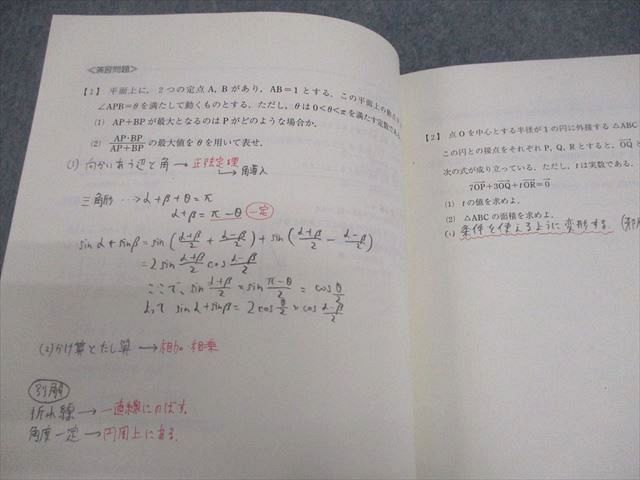 <演習問題>
【1】 平面上に，2つの定点 A, B があり，AB=1 とする．この平面上の動点
∠APB=θ を満たして動くものとする．ただし，θ は 0<θ<π を満たす定数である
(1) AP+BP が最大となるのは P がどのような場合か．
(2) AP・BP/AP+BP の最大値を θ を用いて表せ．
(1) 向かいあう辺と角→正弦定理
↳角導入
三角形…→α+β+θ=π
α+β=π-θ 一定
sinα+sinβ=sin(α+β/2+α-β/2)+sin(α+β/2-α-β/2)
=2sin α+β/2 cos α-β/2
ここで、sin α+β/2=sin π-θ/2=cos θ/2
よって sinα+sinβ=2cos θ/2×cos α-β/2
(2)かけ算とたし算→相加・相乗
別解
折れ線→一直線にのばす。
角度一定→円周上にある。
【2】 点 O を中心とする半径が 1 の円に外接する △ABC
この円との接点をそれぞれ P, Q, R とすると，OQ と
次の式が成り立っている．ただし，t は実数である．
7OP+3OQ+tOR=0
(1) t の値を求めよ．
(2) △ABC の面積を求めよ．
(1) 条件を使えるように変形する。